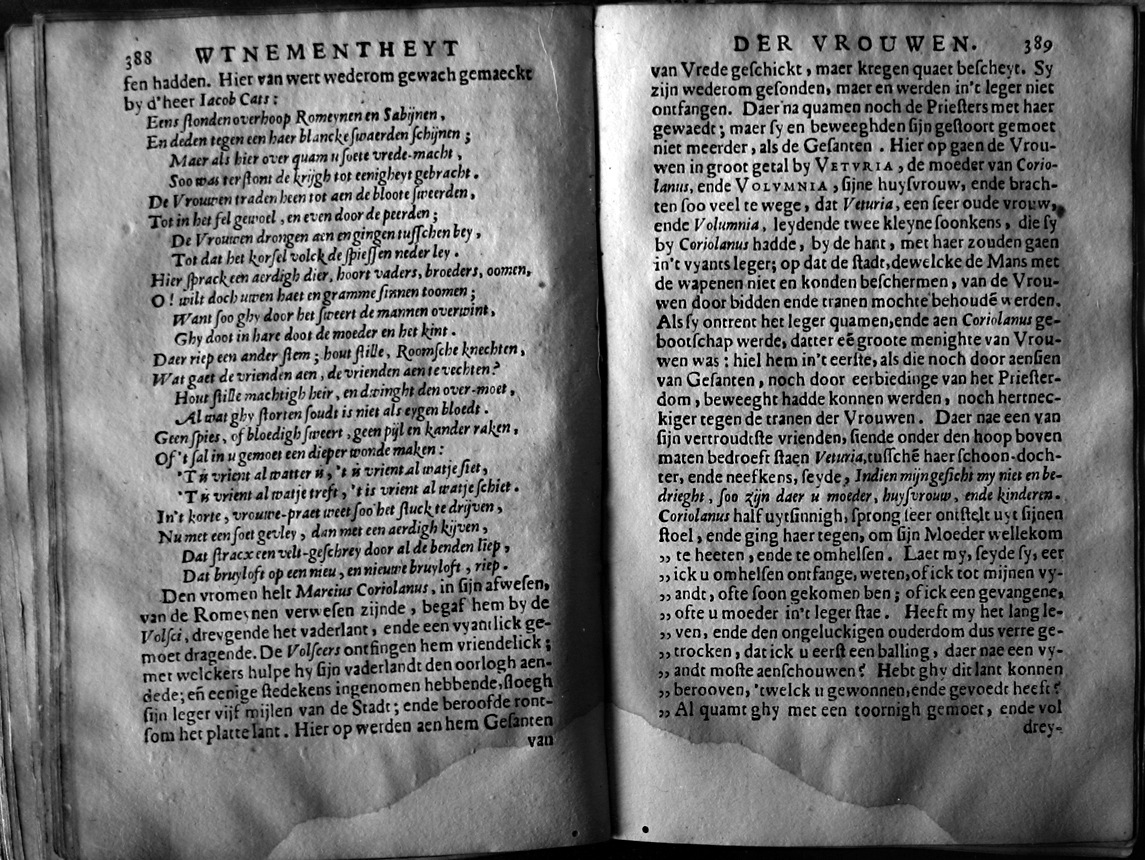 388 WTNEMENTHEYT
ſen hadden. Hier van wert wederom gewach gemaeckt
by d'heer Iacob Cats:
Eens ſtonden overhoop Romeynen en Sabijnen,
En deden tegen een haer blancke ſwaerden ſchijnen;
Maer als hier over quam u ſoete vrede-macht,
Soo was ter ſtont de krijgh tot eenigheyt gebracht.
De Vrouwen traden heen tot aen de bloote ſweerden,
Tot in het fel gewoel, en even door de peerden;
De Vrouwen drongen aen en gingen tuſſchen bey,
Tot dat het korſel volck de ſpieſſen neder ley.
Hier ſprack een aerdigh dier, hoort vaders, broeders, oomen,
O! wilt doch uwen haet en gramme ſinnen toomen;
Want ſoo ghy door het ſweert de mannen overwint,
Ghy doot in hare doot de moeder en het kint.
Daer riep een ander ſtem; hout ſtille, Roomſche knechten,
Wat gaet de vrienden aen, de vrienden aen te vechten?
Hout ſtille machtigh heir, en dwinght den over-moet,
Al wat ghy ſtorten ſoudt is niet als eygen bloedt.
Geen ſpies, of bloedigh ſweert, geen pijl en kander raken,
Of 't ſal in u gemoet een dieper wonde maken:
'T is vrient al watter is, 't is vrient al watje ſiet,
'T is vrient al watje treft, 't is vrient al watje ſchiet.
In't korte, vrouwe-praet weet ſoo het ſtuck te drijven,
Nu met een ſoet gevley, dan met een aerdigh kijven,
Dat ſtracx een velt-geſchrey door al de benden liep,
Dat bruyloft op een nieu, en nieuwe bruyloft, riep.
Den vromen helt Marcius Coriolanus, in ſijn afweſen,
van de Romeynen verweſen zijnde, begaf hem by de
Volſci, dreygende het vaderlant, ende een vyantlick ge-
moet dragende. De Volſcers ontfingen hem vriendelick;
met welckers hulpe hy ſijn vaderlandt den oorlogh aen-
dede; en̄ eenige ſtedekens ingenomen hebbende, ſloegh
ſijn leger vijf mijlen van de Stadt; ende beroofde ront-
ſom het platte lant. Hier op werden aen hem Geſanten
van
DER VROUWEN. 389
van Vrede geſchickt, maer kregen quaet beſcheyt. Sy
zijn wederom geſonden, maer en werden in't leger niet
ontfangen. Daer na quamen noch de Prieſters met haer
gewaedt; maer ſy en beweeghden ſijn geſtoort gemoet
niet meerder, als de Geſanten. Hier op gaen de Vrou-
wen in groot getal by VETVRIA, de moeder van Corio-
lanus, ende VOLVMNIA, ſijne huyſvrouw, ende brach-
ten ſoo veel te wege, dat Veturia, een ſeer oude vrouw,
ende Volumnia, leydende twee kleyne ſoonkens, die ſy
by Coriolanus hadde, by de hant, met haer zouden gaen
in't vyants leger; op dat de ſtadt, dewelcke de Mans met
de wapenen niet en konden beſchermen, van de Vrou-
wen door bidden ende tranen mochte behoudē werden.
Als ſy ontrent het leger quamen, ende aen Coriolanus ge-
bootſchap werde, datter eē groote menighte van Vrou-
wen was: hiel hem in't eerſte, als die noch door aenſien
van Geſanten, noch door eerbiedinge van het Prieſter-
dom, beweeght hadde konnen werden, noch hertnec-
kiger tegen de tranen der Vrouwen. Daer nae een van
ſijn vertroudtſte vrienden, ſiende onder den hoop boven
maten bedroeft ſtaen Veturia, tuſſchē haer ſchoon-doch-
ter, ende neefkens, ſeyde, Indien mijn geſicht my niet en be-
drieght, ſoo zijn daer u moeder, huyſvrouw, ende kinderen.
Coriolanus half uytſinnigh, ſprong ſeer ontſtelt uyt ſijnen
ſtoel, ende ging haer tegen, om ſijn Moeder wellekom
,, te heeten, ende te omhelſen. Laet my, ſeyde ſy, eer
,, ick u omhelſen ontfange, weten, of ick tot mijnen vy-
,, andt, ofte ſoon gekomen ben; of ick een gevangene,
,, ofte u moeder in't leger ſtae. Heeft my het lang le-
,, ven, ende den ongeluckigen ouderdom dus verre ge-
,, trocken, dat ick u eerſt een balling, daer nae een vy-
,, andt moſte aenſchouwen? Hebt ghy dit lant konnen
,, berooven, 'twelck u gewonnen, ende gevoedt heeft?
,, Al quamt ghy met een toornigh gemoet, ende vol
drey-